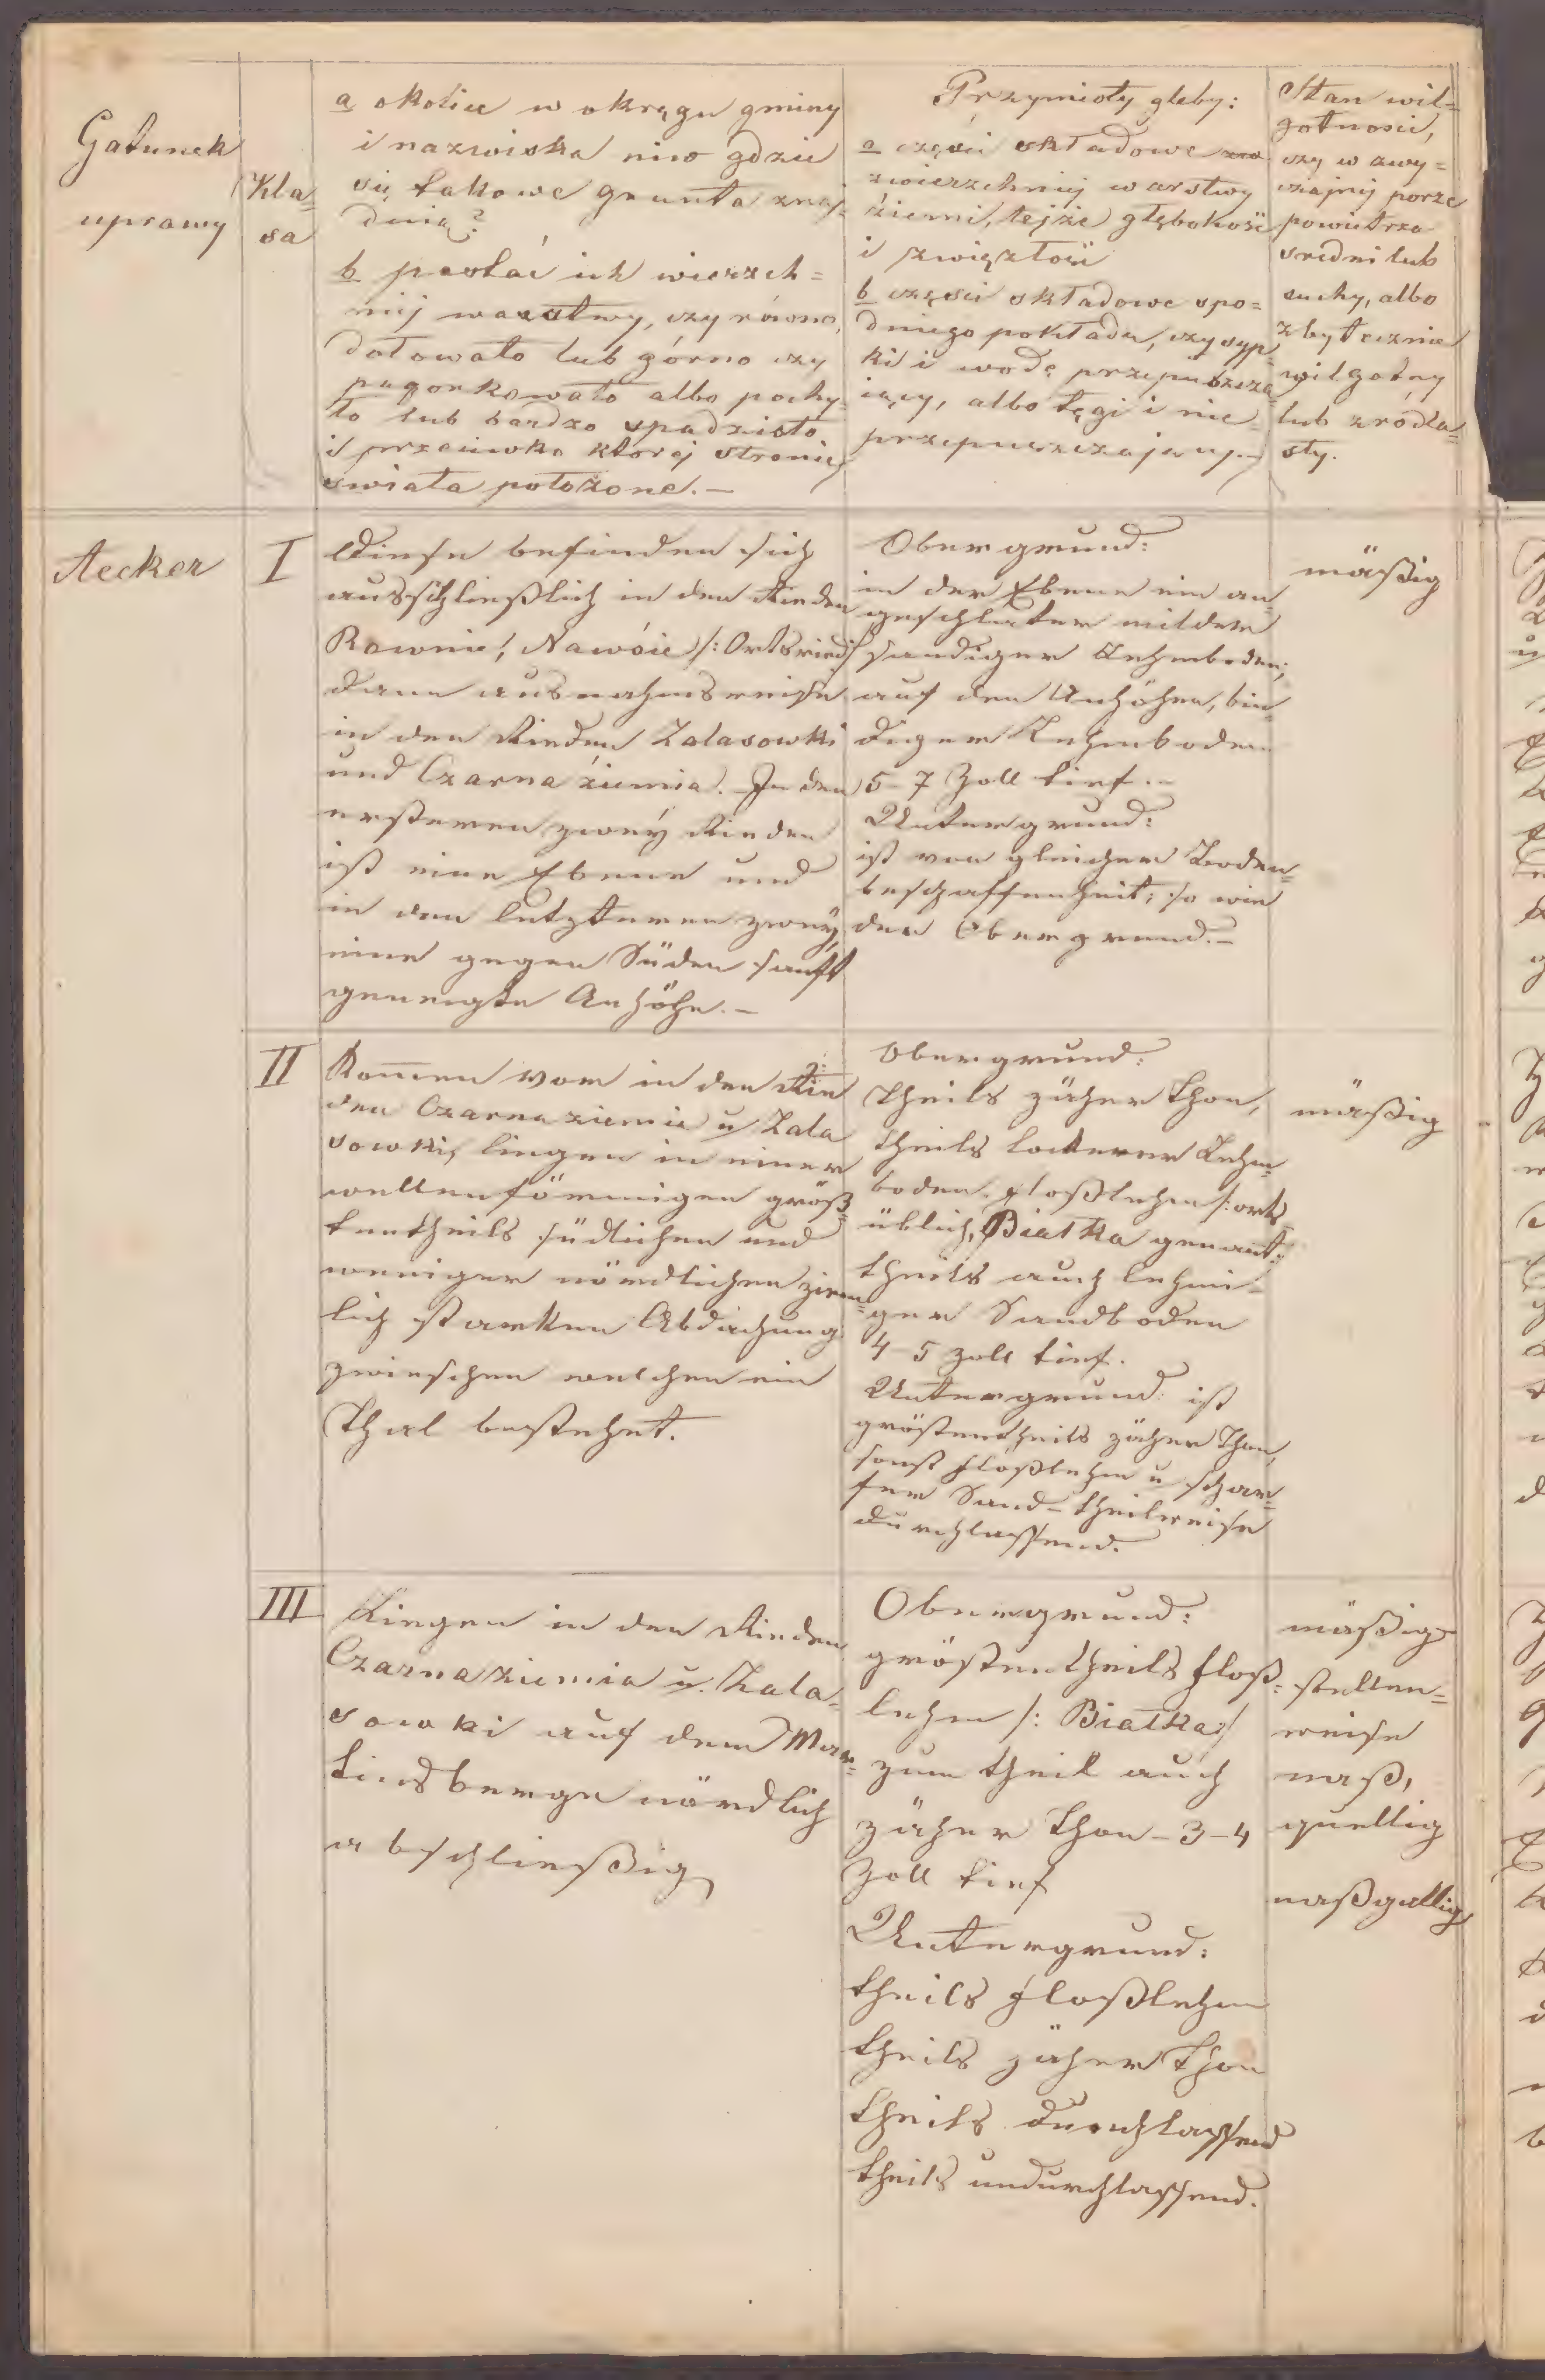 Gatunek
uprawy
Kla=
sa
a okolice w okręgu gminy
i nazwiska niw gdzie
się takowe grunta znaj=
dują?
b postać ich wierzch=
niej warstwy, czy równo,
dołowato lub górno czy
pagorkowato albo pochy=
ło lub bardzo spadzisto
i przeciwko ktorej stronie
swiata położone.—
Przymioty gleby:
a części składowe
zwierzchniej warstwy
ziemi, tejże głębokość
i zwięzłość
b części składowe spo=
dniego pokładu, czy syp=
ki i wodę przepuszcza=
iący, albo tęgi i nie=
przepuszczający.—
Stan wil=
gotnosci,
czy w zwy=
czajnej porze
powietrza
sredni lub
suchy, albo
zbytecznie
wilgotny
lub zrodła=
sty.
Aecker
I
Diese befinden sich
ausschließlich in den Rieden
Rownie, Nawsie /: Ortsried :/
dann ausnahmsweise
in den Rieden Zalasowki
und Czarna ziemia. In den
ersteren zwey Rieden
ist eine Ebene und
in den letzteren zwey,
eine gegen Süden sanft
geneigte Anhöhe.—
Obergrund:
in der Ebene ein an=
geschlemter milder
sandiger Lehmboden;
auf den Anhöhen, bin=
diger Lehmboden
5-7 Zoll tief.—
Untergrund:
ist von gleicher Boden=
beschaffenheit; so wie
der Obergrund.—
mäßig
II
Komen vor in den Rie=
den Czarna ziemia u Zala
sowki, liegen in einer
wellenförmigen größ=
tentheils südlichen und
weniger nördlichen ziem=
lich starken Abdachung
zwieschen welchen ein
Thal bestehet.
Obergrund:
Theils zäher Thon,
theils lockerer Lehm=
boden, floßlehm /: orts=
üblich, Białka genant :/
theils auch lehmi=
ger Sandboden
4-5 Zoll tief.
Untergrund: ist
größtentheils zäher Thon,
sonst floßlehm u schar=
fer Sand – theilweise
durchlassend.
mäßig
III
Liegen in den Rieden
Czarna ziemia u. Zala=
sowki auf dem Mar=
tinsberge nördlich
abschließig
Obergrund:
größtentheils floß=
lehm /: Białka :/
zum theil auch
zäher Thon – 3-4
Zoll tief
Untergrund:
theils floßlehm
theils zäher Thon
theils durchlassend
theils undurchlassend.
mäßig
stellen=
weise
naß,
quellig
naßgallig